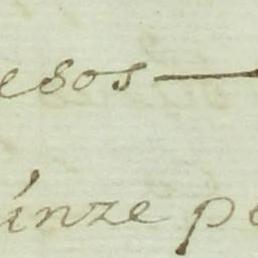 esos—
inze pe